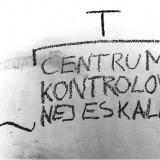 T
CENTRUM
KONTROLOW
NEJ ESKALA